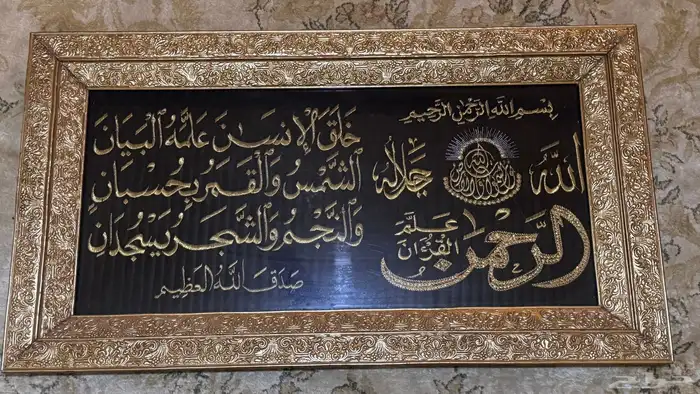 بِسْمِ اللَّهِ الرَّحْمَنِ الرَّحِيمِ
اللَّه جل جلاله
الرَّحْمَنُ
عَلَّمَ الْقُرْآنَ
خَلَقَ ٱلْإِنسَـٰنَ عَلَّمَهُ ٱلْبَيَانَ
الشَّمْسُ وَالْقَمَرُ بِحُسْبَانٍ
وَالنَّجْمُ وَالشَّجَرُ يَسْجُدَانِ
صَدَقَ اللَّهُ الْعَظِيم